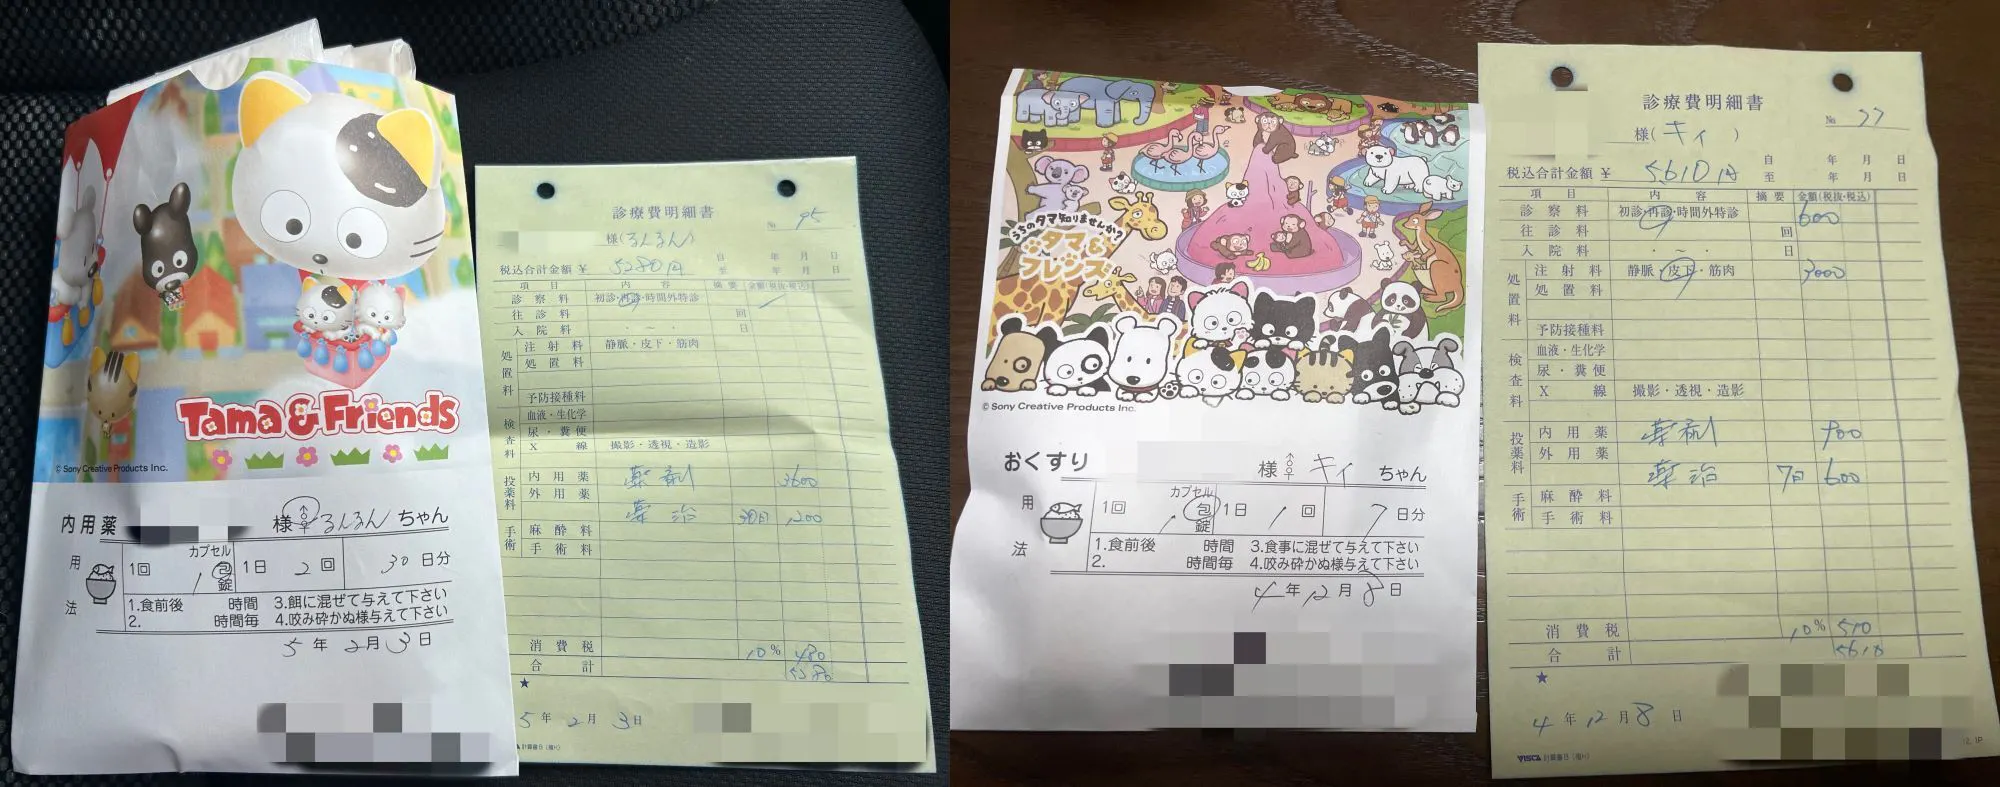 Tama & Friends
© Sony Creative Products Inc.
内用薬 様 ♂♀ るんるん ちゃん
用法
1回 1 カプセル 包 錠 1日 2 回 30 日分
1.食前後 時間 3.餌に混ぜて与えて下さい
2. 時間毎 4.咬み砕かぬ様与えて下さい
5 年 2 月 3 日
診療費明細書
№ 95
様(るんるん)
税込合計金額 ¥ 5280円 自 年 月 日
至 年 月 日
項目 内容 摘要 金額(税抜・税込)
診察料 初診・再診・時間外特診
往診料 回
入院料 ・ ~ ・ 日
処置料 注射料 静脈・皮下・筋肉
処置料
予防接種料
検査料 血液・生化学
尿・糞便
X線 撮影・透視・造影
投薬料 内用薬 薬剤 3600
外用薬
薬治 30日 1200
手術 麻酔料
手術料
消費税 10% 480
合計 5280
★
5 年 2 月 3 日
計算書B(複H)
うちのタマ知りませんか?
タマ&フレンズ
© Sony Creative Products Inc.
おくすり 様 ♂♀ キィ ちゃん
用法
1回 1 カプセル 包 錠 1日 1 回 7 日分
1.食前後 時間 3.食事に混ぜて与えて下さい
2. 時間毎 4.咬み砕かぬ様与えて下さい
4 年 12 月 8 日
診療費明細書
№ 27
様(キィ)
税込合計金額 ¥ 5610円 自 年 月 日
至 年 月 日
項目 内容 摘要 金額(税抜・税込)
診察料 初診・再診・時間外特診 600
往診料 回
入院料 ・ ~ ・ 日
処置料 注射料 静脈・皮下・筋肉 3000
処置料
予防接種料
検査料 血液・生化学
尿・糞便
X線 撮影・透視・造影
投薬料 内用薬 薬剤 900
外用薬
薬治 7日 600
手術 麻酔料
手術料
消費税 10% 510
合計 5610
★
4 年 12 月 8 日
VISCA 計算書B(複H)